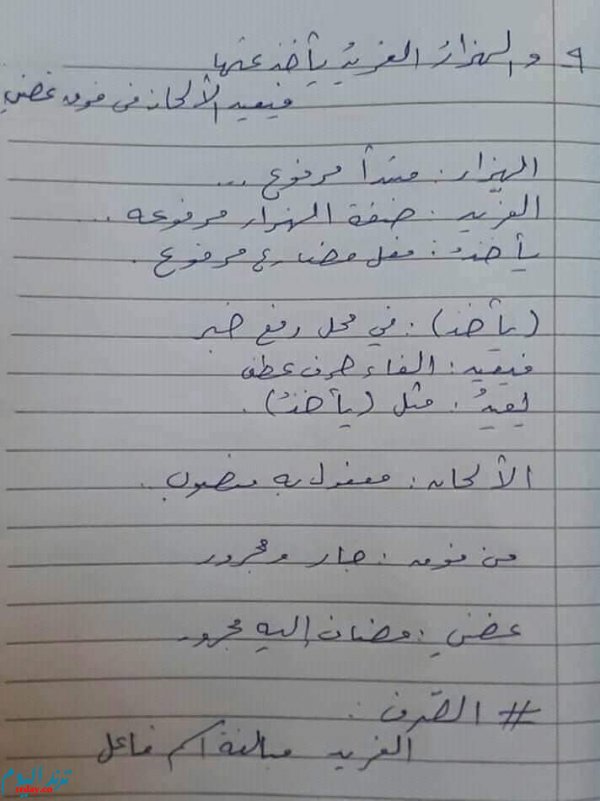 ٩ و الهزارُ الغريدُ يأخذ عنها
فيعيد الألحان من فوق غصني
الهزار: مبتدأ مرفوع ...
الغرّيد: صفة الهزار مرفوعه ..
يأخذُ: فعل مضارع مرفوع.
(يأخذ): في محل رفع خبر
فيعيد: الفاء حرف عطف
يعيدُ: مثل (يأخذُ).
الألحان: مفعول به منصوب..
من فوق: جار ومجرور
غصني: مضاف إليه مجرور
# الصّرف:
الغريد مبالغة اسم فاعل
ترند اليوم